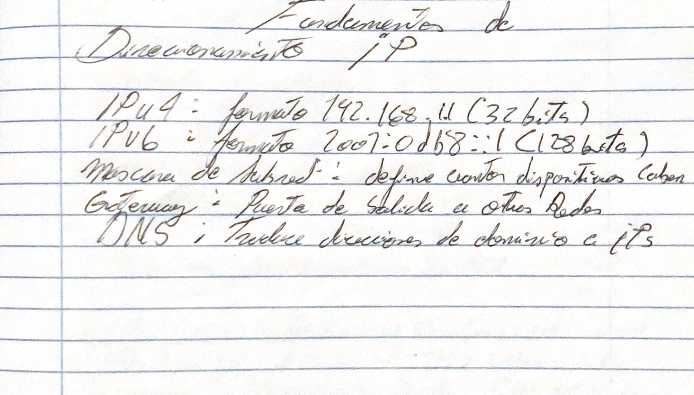 Fundamentos de
Direccionamiento iP
IPv4 : formato 192.168.1.1 (32 bits)
IPv6 : formato 2001:0db8::1 (128 bits)
Mascara de Subred : define cuantos dispositivos caben
Gateway : Puerta de Salida a otras Redes
DNS : Traduce direcciones de dominio a iPs